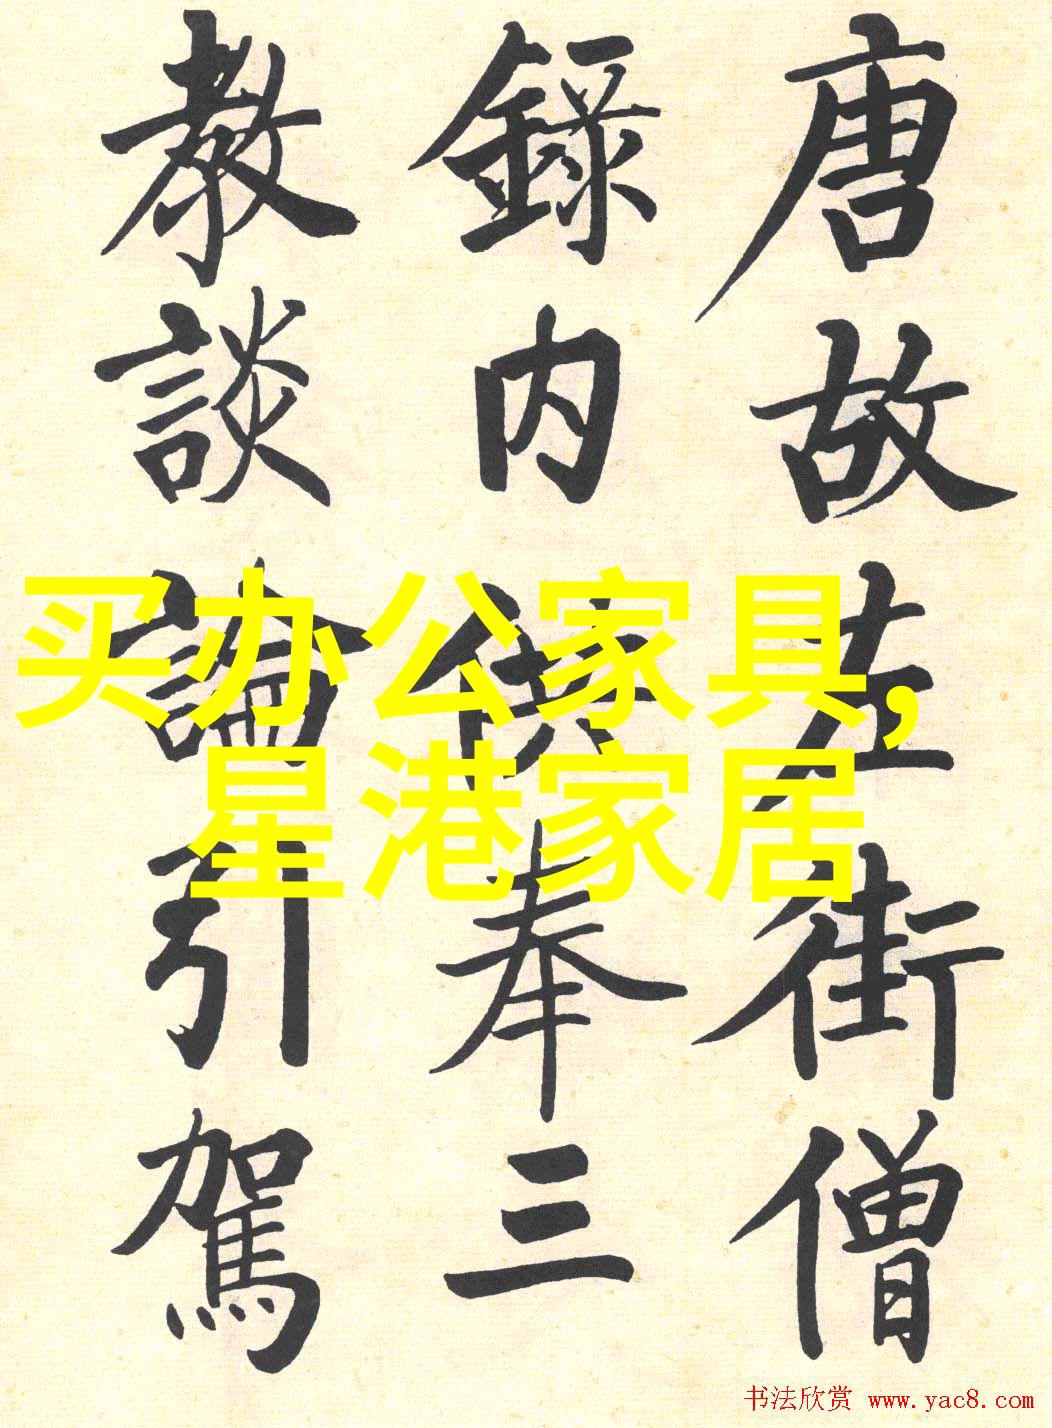 唐故左街僧
錄内供奉三
教談論引駕
买办公家具,
星港家居
书法欣赏 www.yac8.com